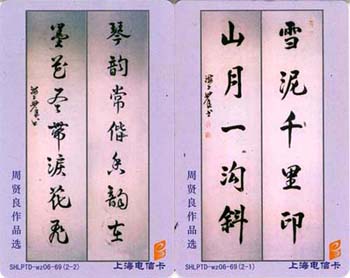 琴韵常偕韵在
墨花尽带浪花飛
周贤良作品选
SHLPTD-wz06-69(2-2)
上海电信卡
雪泥千里印
山月一沟斜
周贤良作品选
SHLPTD-wz06-69(2-1)
上海电信卡